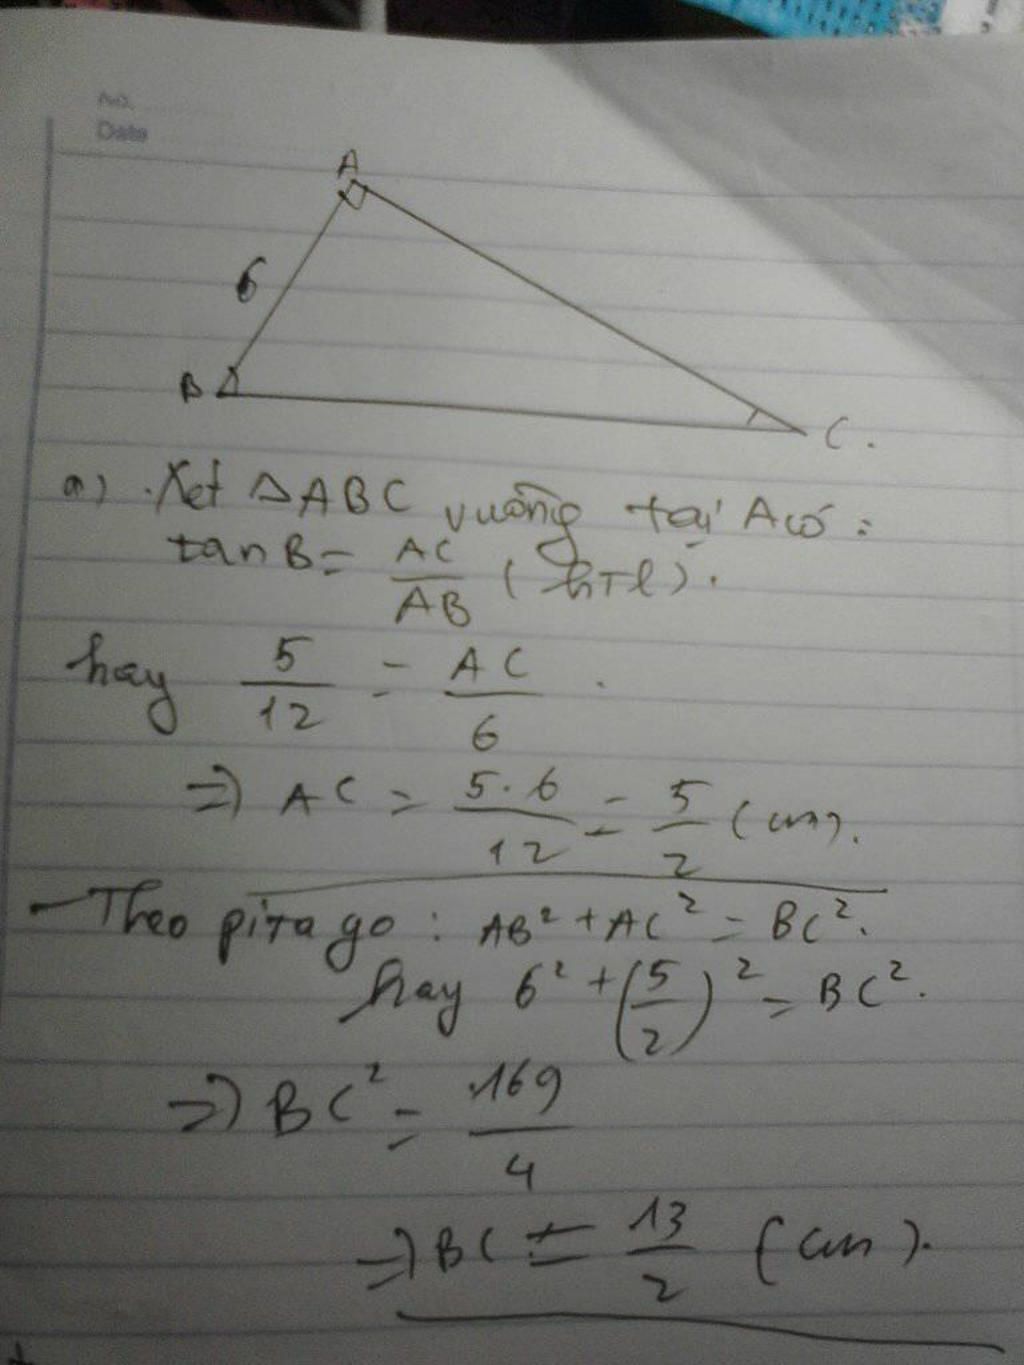 No.
Date
A
6
B
C.
a) . Xet △ABC vuông tại A có :
tan B = AC/AB ( hTl ).
hay 5/12 = AC/6 .
=> AC = 5.6/12 = 5/2 (cm).
- Theo pitago : AB² + AC² = BC².
hay 6² + (5/2)² = BC².
=> BC² = 169/4
=> BC = 13/2 (cm).